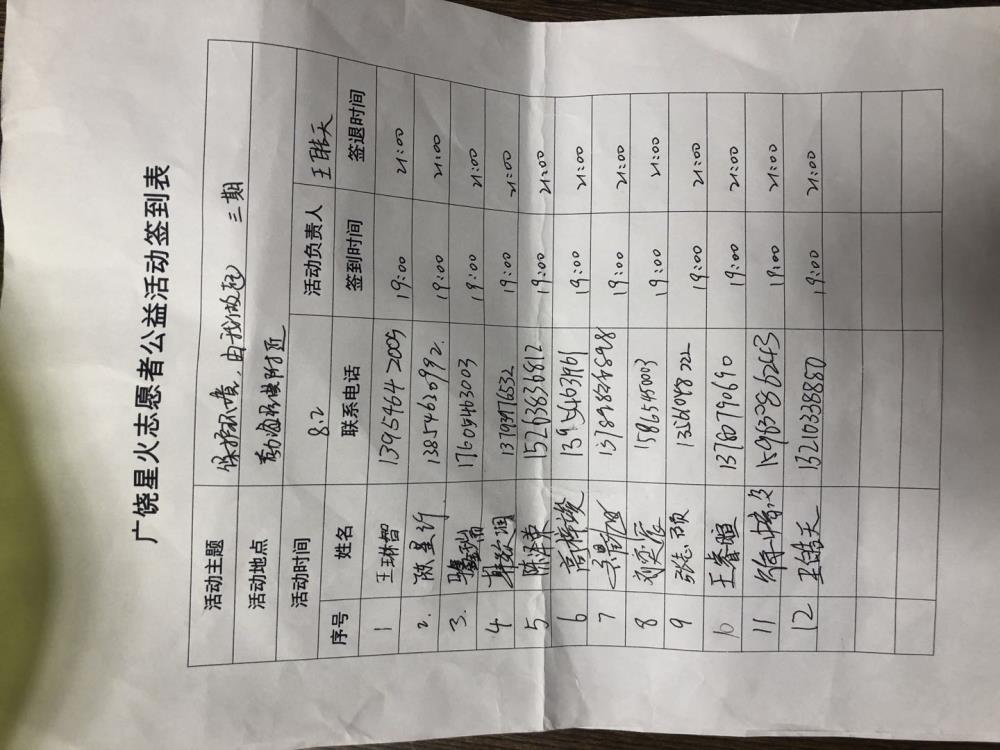 广饶星火志愿者公益活动签到表
活动主题 保护环境,由我做起 三期
活动地点
活动时间 8.2 活动负责人 王皓天
序号 姓名 联系电话 签到时间 签退时间
1 王琳智 13954642005 19:00 21:00
2. 13854626992. 19:00 21:00
3. 17605463003 19:00 21:00
4 13793976532 19:00 21:00
5 陈泽东 15263836812 19:00 21:00
6 13954639161 19:00 21:00
7 13789828898 19:00 21:00
8 刘奕辰 15865450003 19:00 21:00
9 张志硕 19:00 21:00
10 王睿暄 19:00 21:00
11 15963286243 19:00 21:00
12 王皓天 13210338880 19:00 21:00